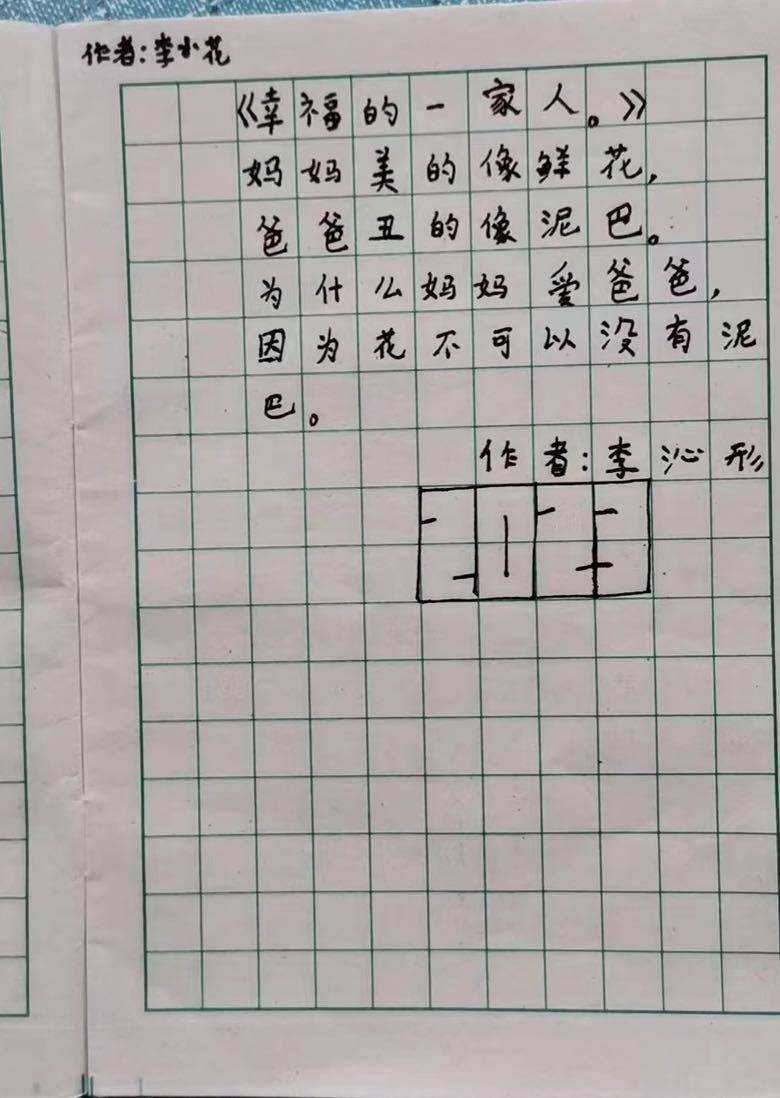 作者:李小花
《幸福的一家人。》
妈妈美的像鲜花,
爸爸丑的像泥巴。
为什么妈妈爱爸爸,
因为花不可以没有泥
巴。
作者:李沁形